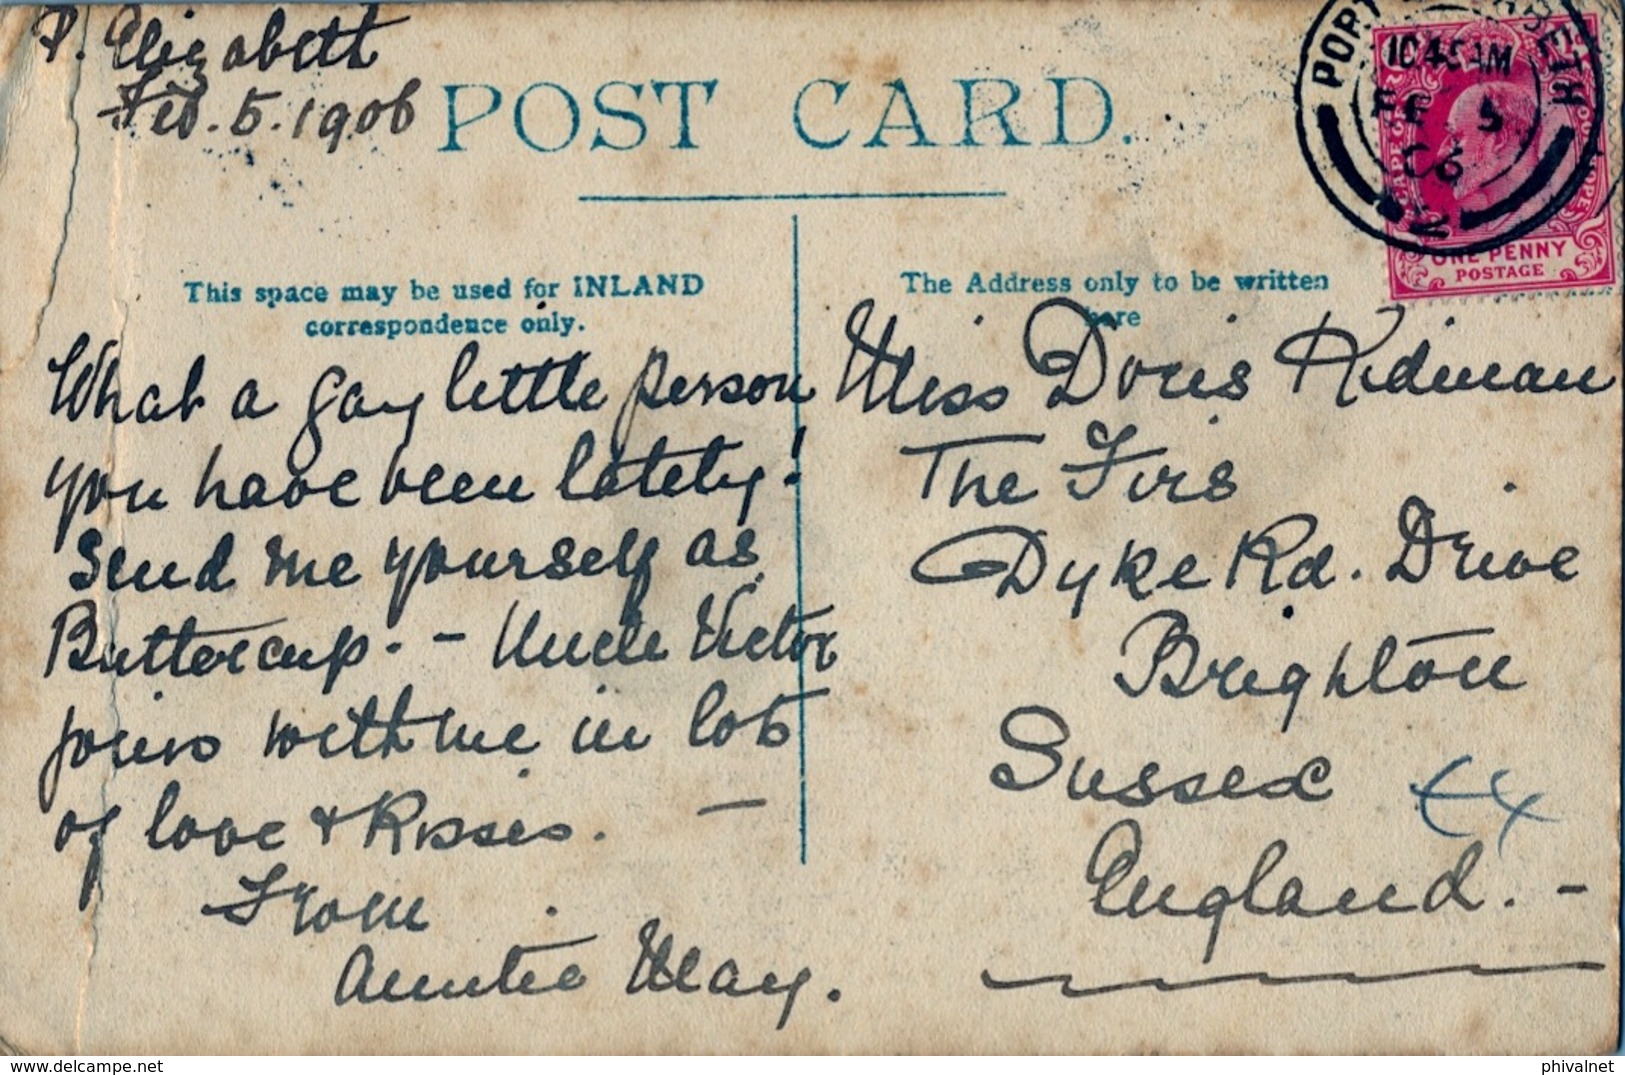 P. Elizabeth
Feb. 5. 1906
POST CARD.
PORT ELIZABETH
10 45 AM
FE 5
06
CAPE OF GOOD HOPE
ONE PENNY
POSTAGE
This space may be used for INLAND
correspondence only.
The Address only to be written
here
What a gay little person
you have been lately!
Send me yourself as
Buttercup. - Uncle Victor
joins with me in lots
of love & Kisses. -
From
Auntie May.
Miss Doris Ridman
The Firs
Dyke Rd. Drive
Brighton
Sussex
England. -
phivalnet